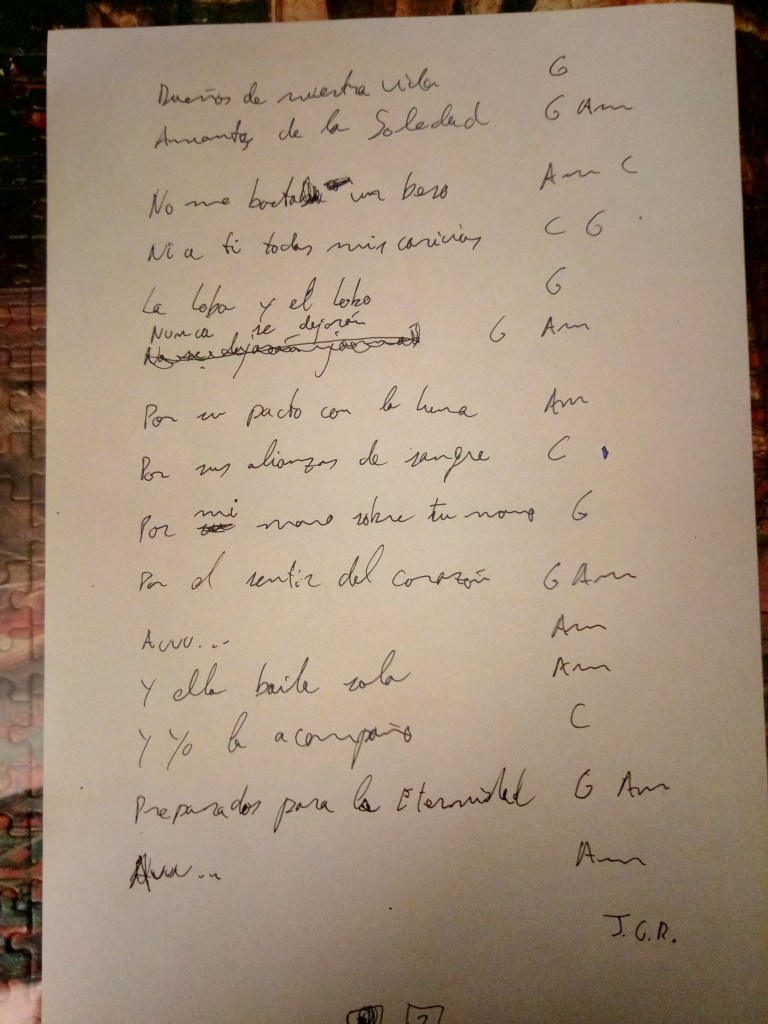 Dueños de nuestra vida G
Amantes de la Soledad G Am
No me basta un beso Am C
Ni a ti todas mis caricias C G
La loba y el lobo G
Nunca se dejarán G Am
No se dejarán jamás
Por su pacto con la luna Am
Por sus alianzas de sangre C
Por mi mano sobre tu mano G
Por el sentir del corazón G Am
Auuu... Am
Y ella baila sola Am
Y Yo la acompaño C
Preparados para la Eternidad G Am
Auuu... Am
J.G.R.
2